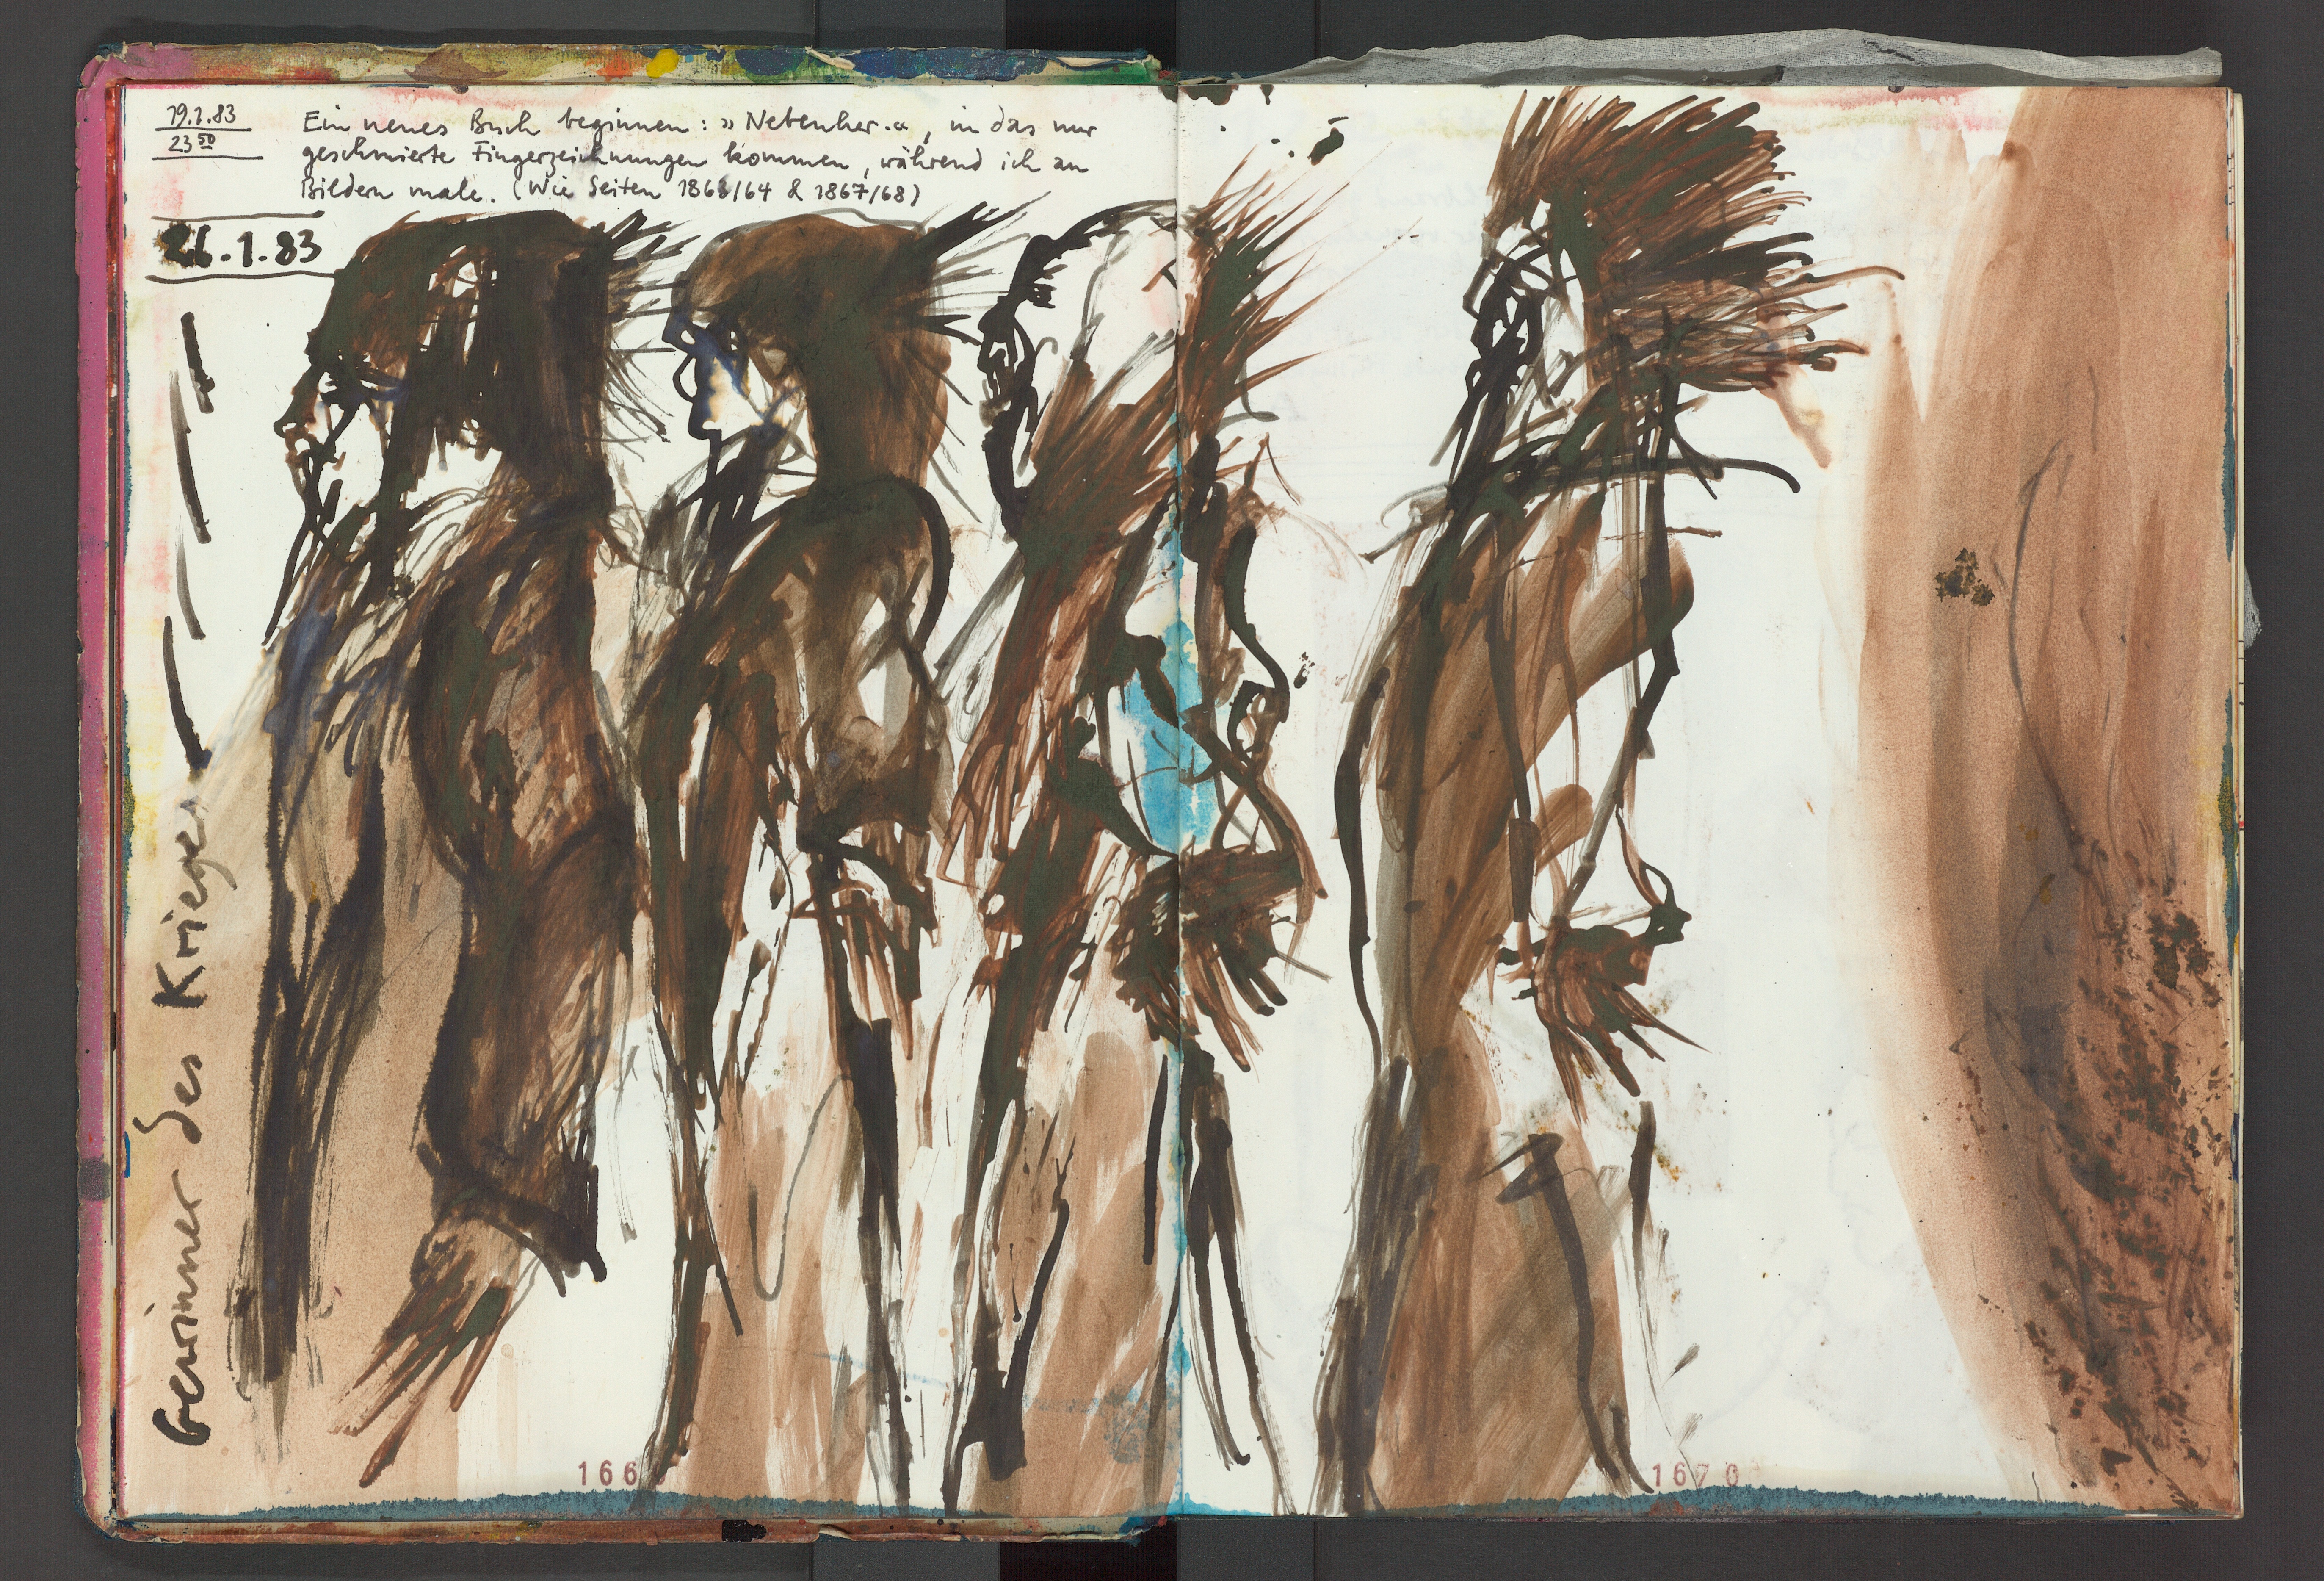 19.1.83
23 50
Ein neues Buch beginnen: »Nebenher.«, in das nur
geschmierte Fingerzeichnungen kommen, während ich an
Bildern male. (Wie Seiten 1863/64 & 1867/68)
26.1.83
Gewinner des Krieges
166
1670